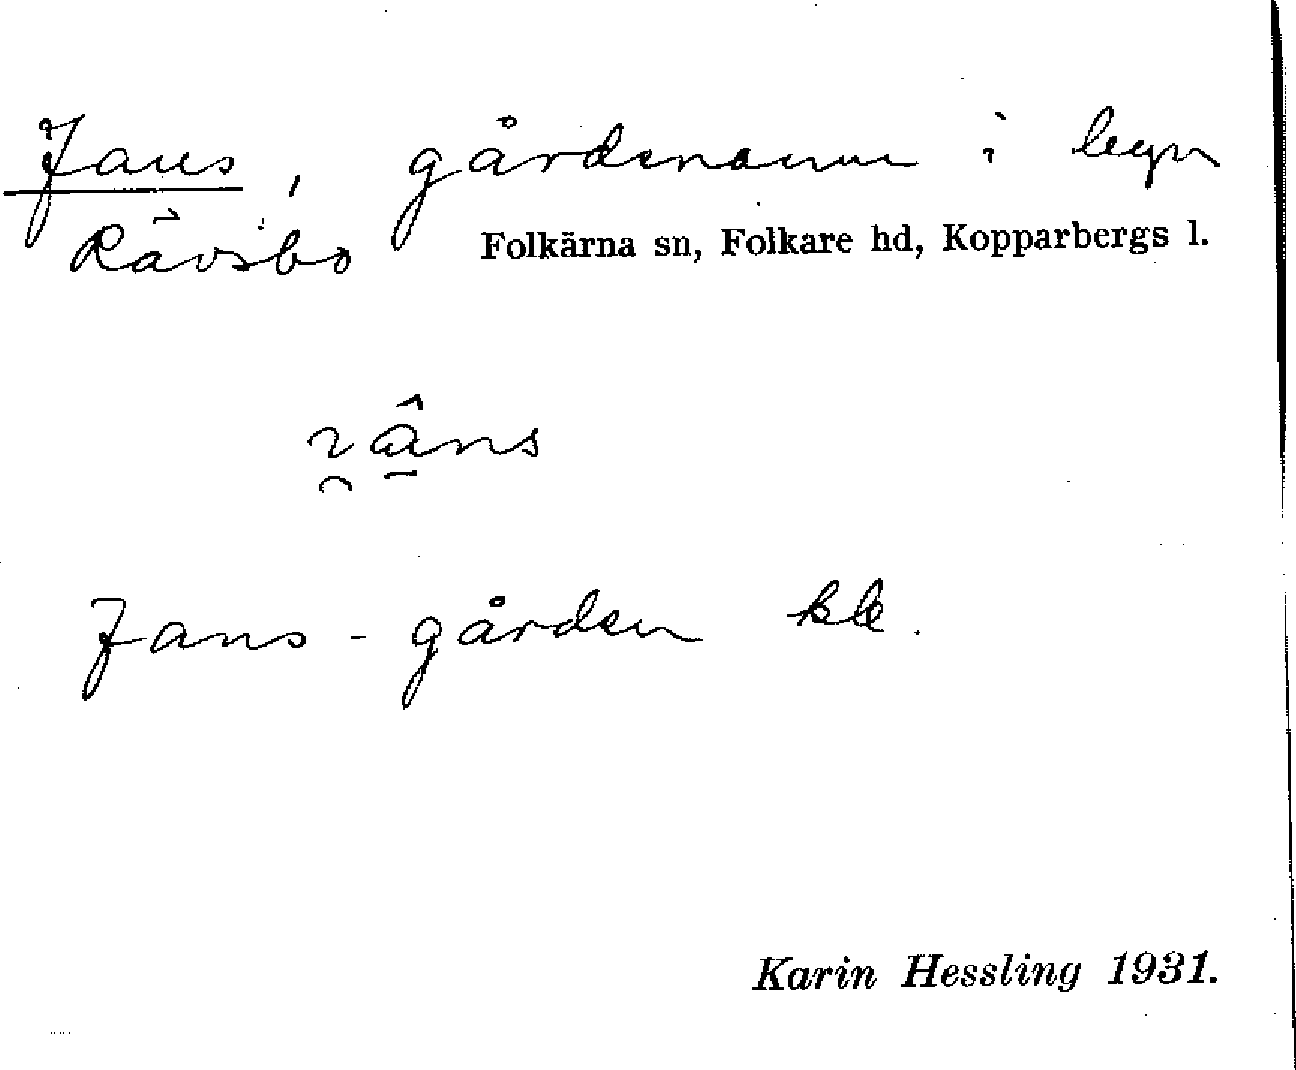 Jans, gårdsnamn i byn
Rävsbo Folkärna sn, Folkare hd, Kopparbergs l.
Jans-gården
Karin Hessling 1931.